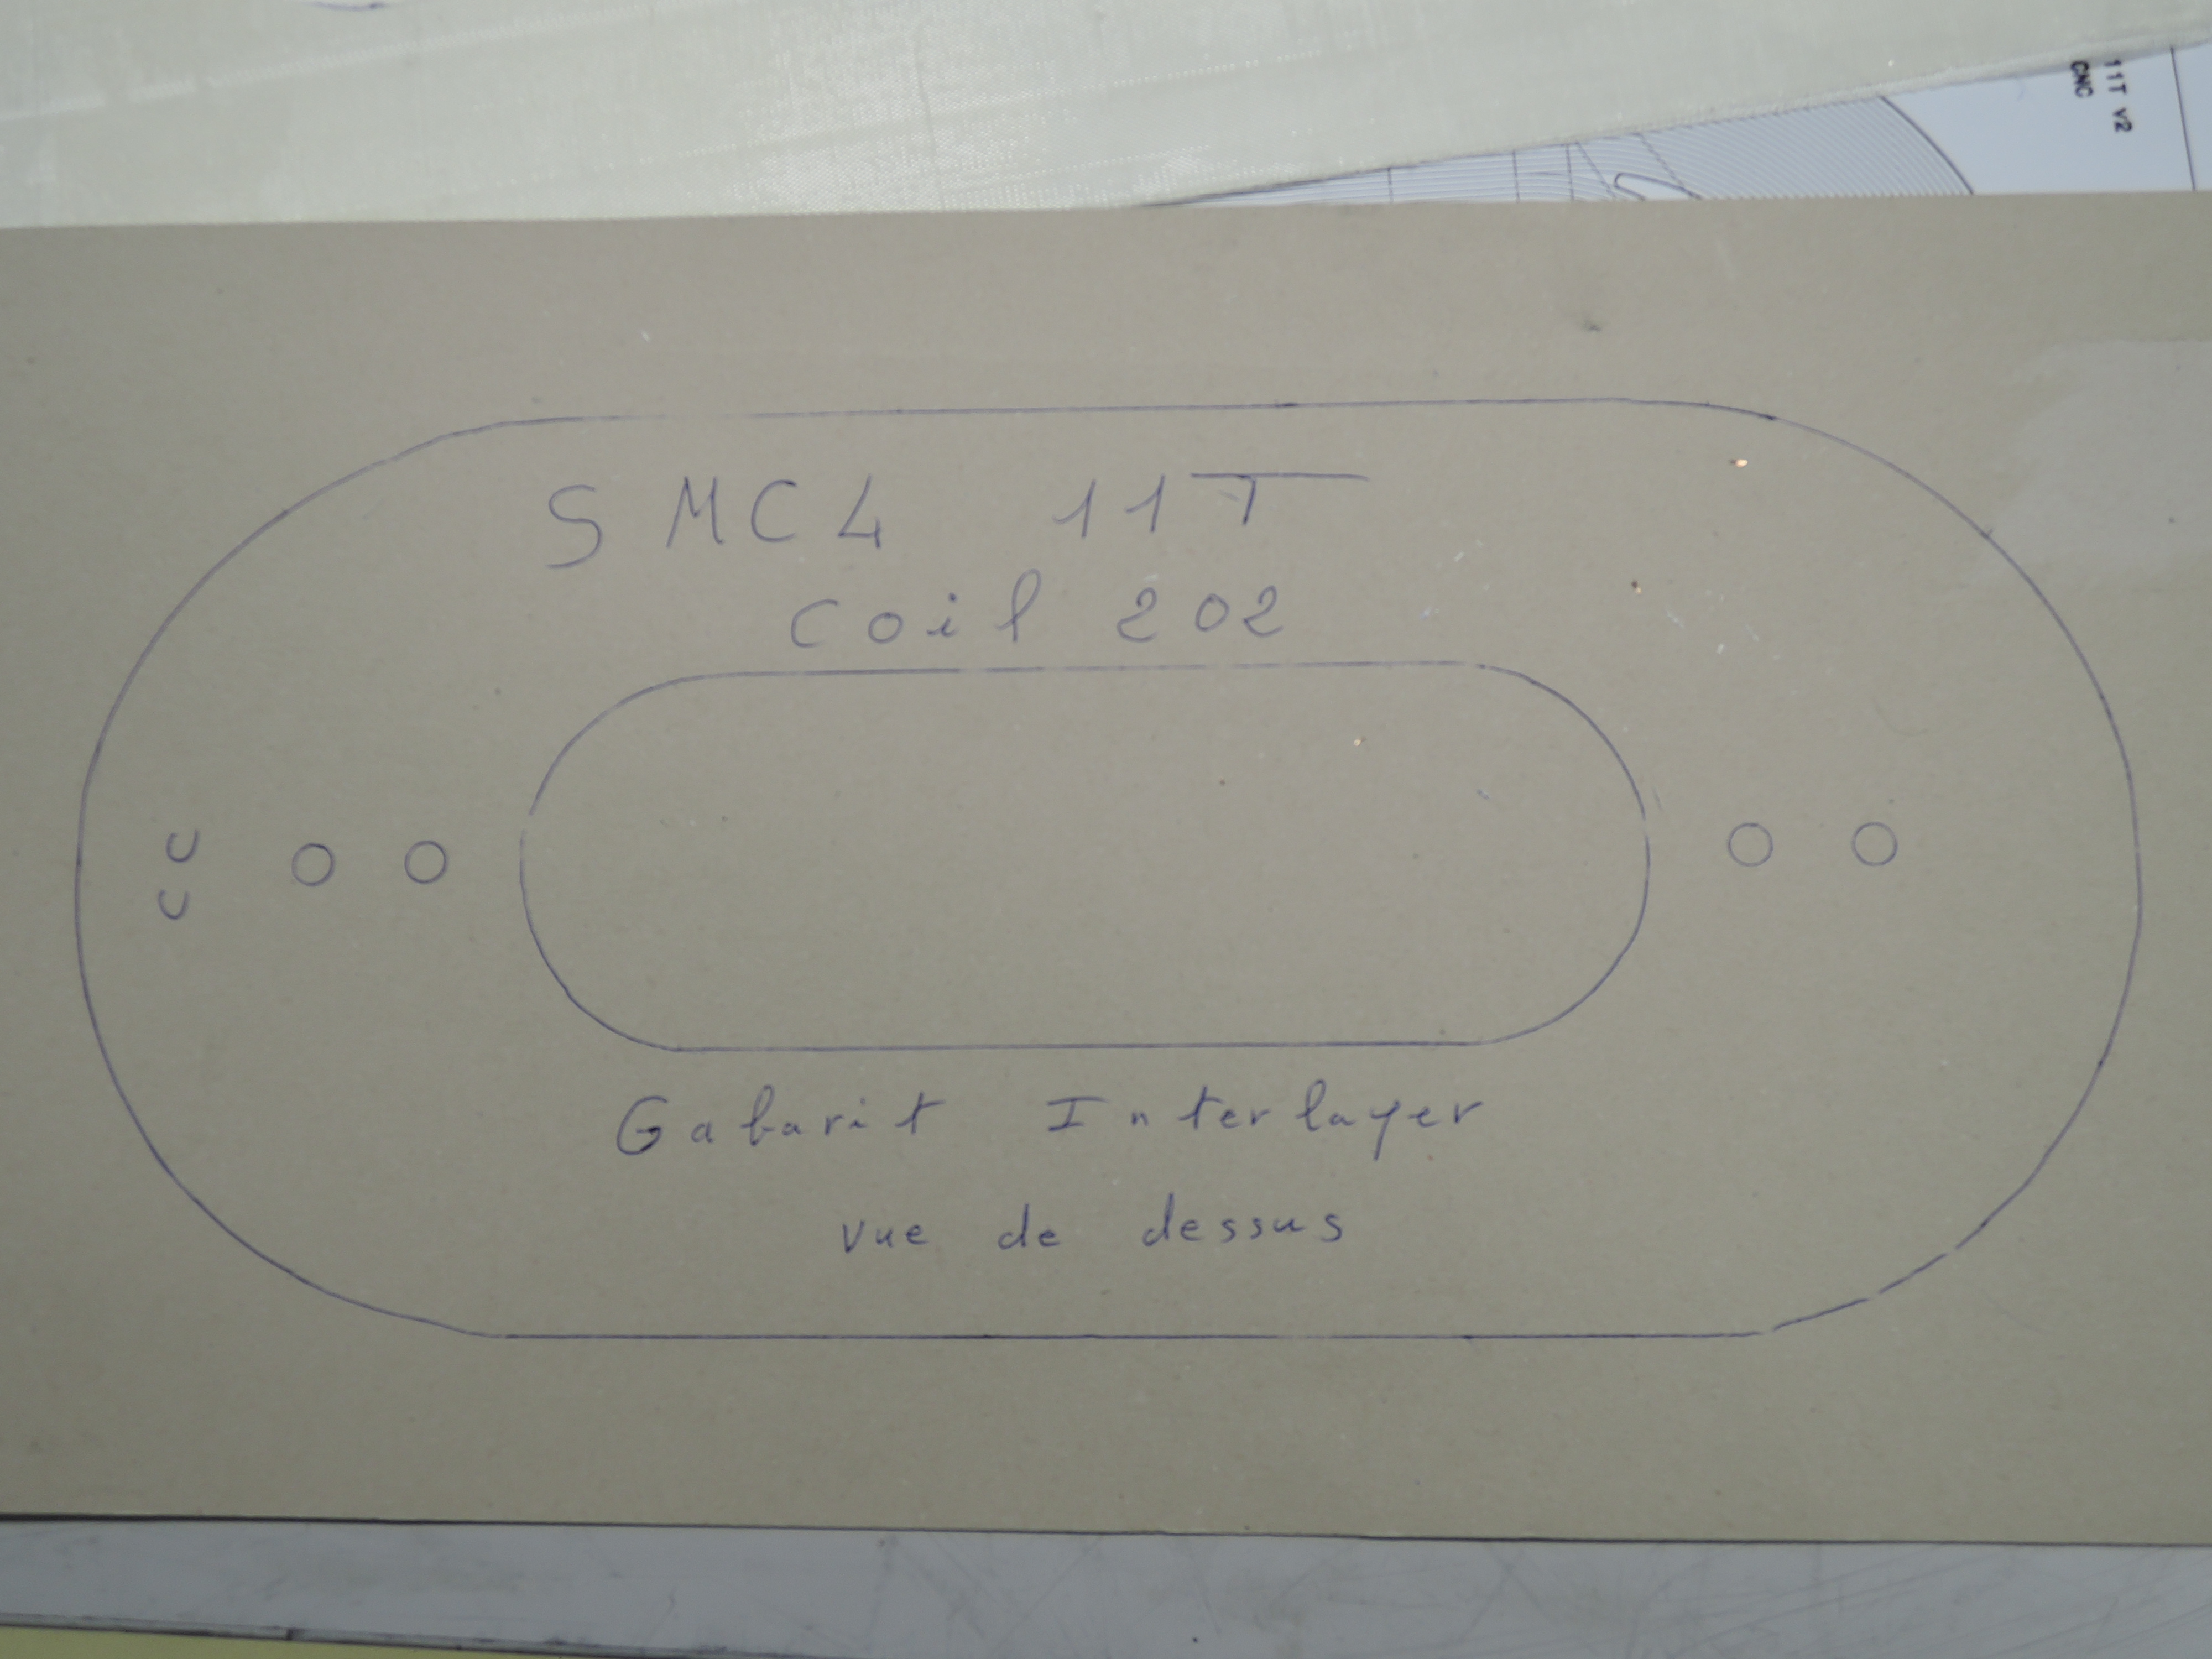 11T v2
CNC
SMC4 11T
Coil 202
Gabarit Interlayer
vue de dessus